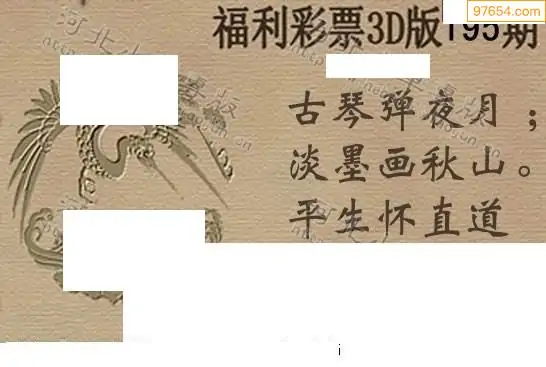 福利彩票3D版195期
97654.com
古琴弹夜月；
淡墨画秋山。
平生怀直道
i